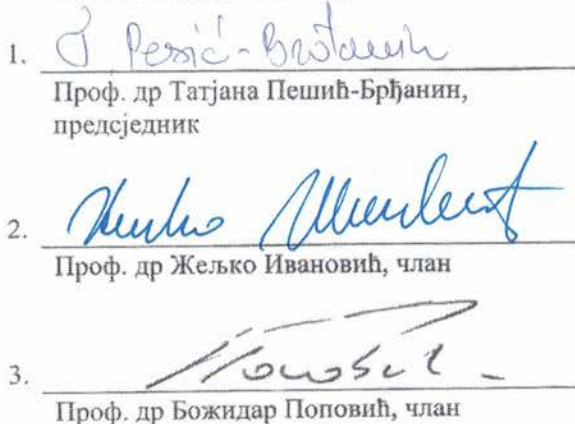 1.
Проф. др Татјана Пешић-Брђанин,
предсједник
2.
Проф. др Жељко Ивановић, члан
3.
Проф. др Божидар Поповић, члан